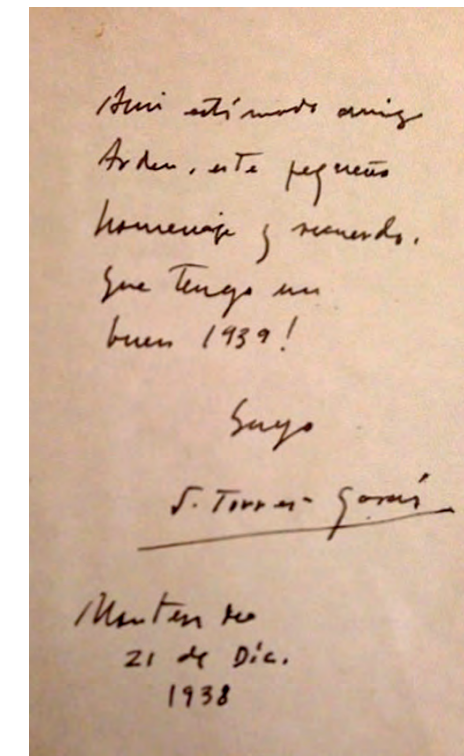 A mi estimado amigo
Arden, este pequeño
homenaje y recuerdo.
Que tenga un
buen 1939!
Suyo
J. Torres-García
Montevideo
21 de Dic.
1938